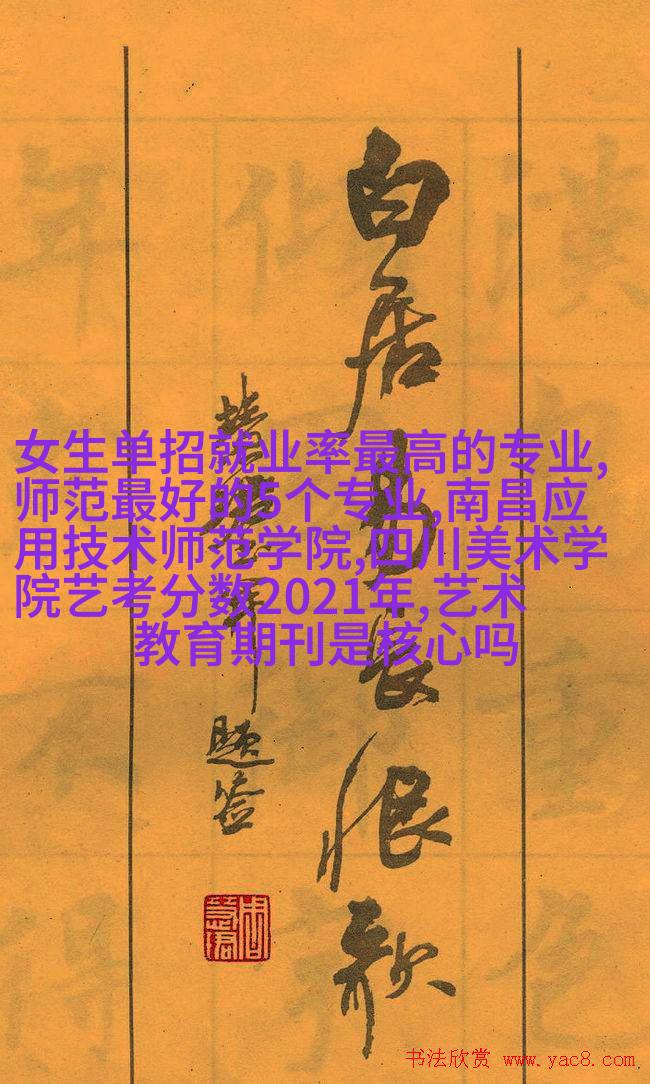 白居易長恨歌
题签
女生单招就业率最高的专业,
师范最好的5个专业,南昌应
用技术师范学院,四川美术学
院艺考分数2021年,艺术
教育期刊是核心吗
书法欣赏 www.yac8.com